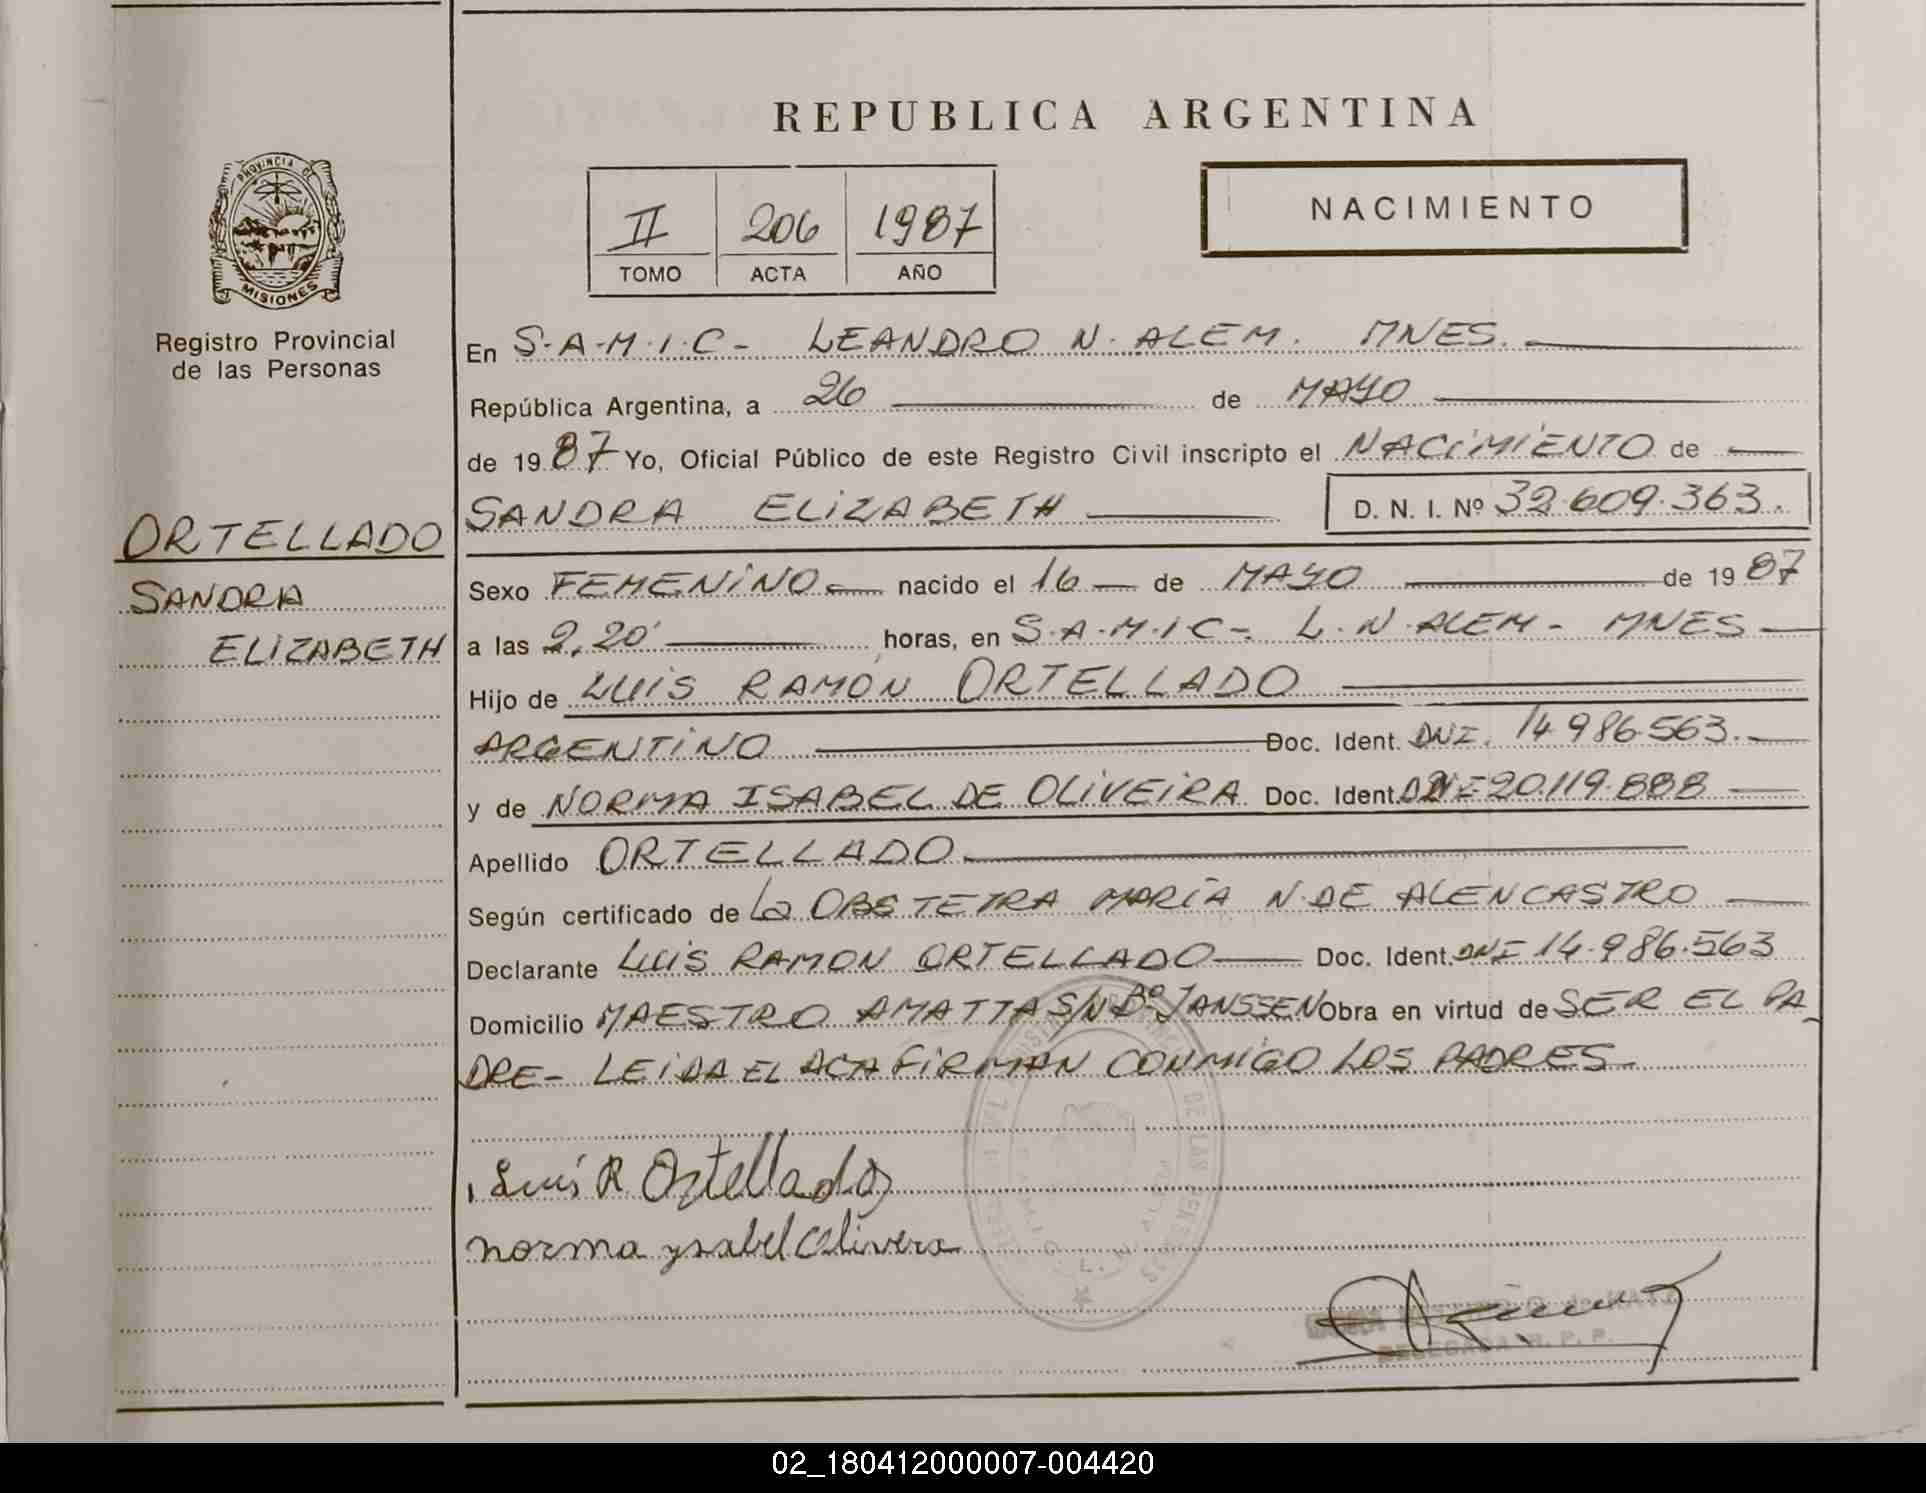 REPUBLICA ARGENTINA
PROVINCIA DE
MISIONES
Registro Provincial
de las Personas
II 206 1987
TOMO ACTA AÑO
NACIMIENTO
ORTELLADO
SANDRA
ELIZABETH
En S.A.M.I.C- LEANDRO N. ALEM. MNES.
República Argentina, a 26 de MAYO
de 1987 Yo, Oficial Público de este Registro Civil inscripto el NACIMIENTO de
SANDRA ELIZABETH D. N. I. Nº 32.609.363.
Sexo FEMENINO nacido el 16 de MAYO de 1987
a las 2,20' horas, en S.A.M.I.C-. L.N.ALEM- MNES
Hijo de LUIS RAMÓN ORTELLADO
ARGENTINO Doc. Ident. DNI. 14.986.563.
y de NORMA ISABEL DE OLIVEIRA Doc. Ident. DNI 20.119.888
Apellido ORTELLADO
Según certificado de La OBSTETRA MARÍA N. DE ALENCASTRO
Declarante LUIS RAMON ORTELLADO Doc. Ident. DNI 14.986.563
Domicilio MAESTRO AMATTA S/N Bº JANSSEN Obra en virtud de SER EL PA
DRE- LEIDA EL ACTA FIRMAN CONMIGO LOS PADRES
DE LAS PERSONAS
Luis R Ortellado
norma ysabel Olivera
DELEGADA R. P. P.
02_180412000007-004420